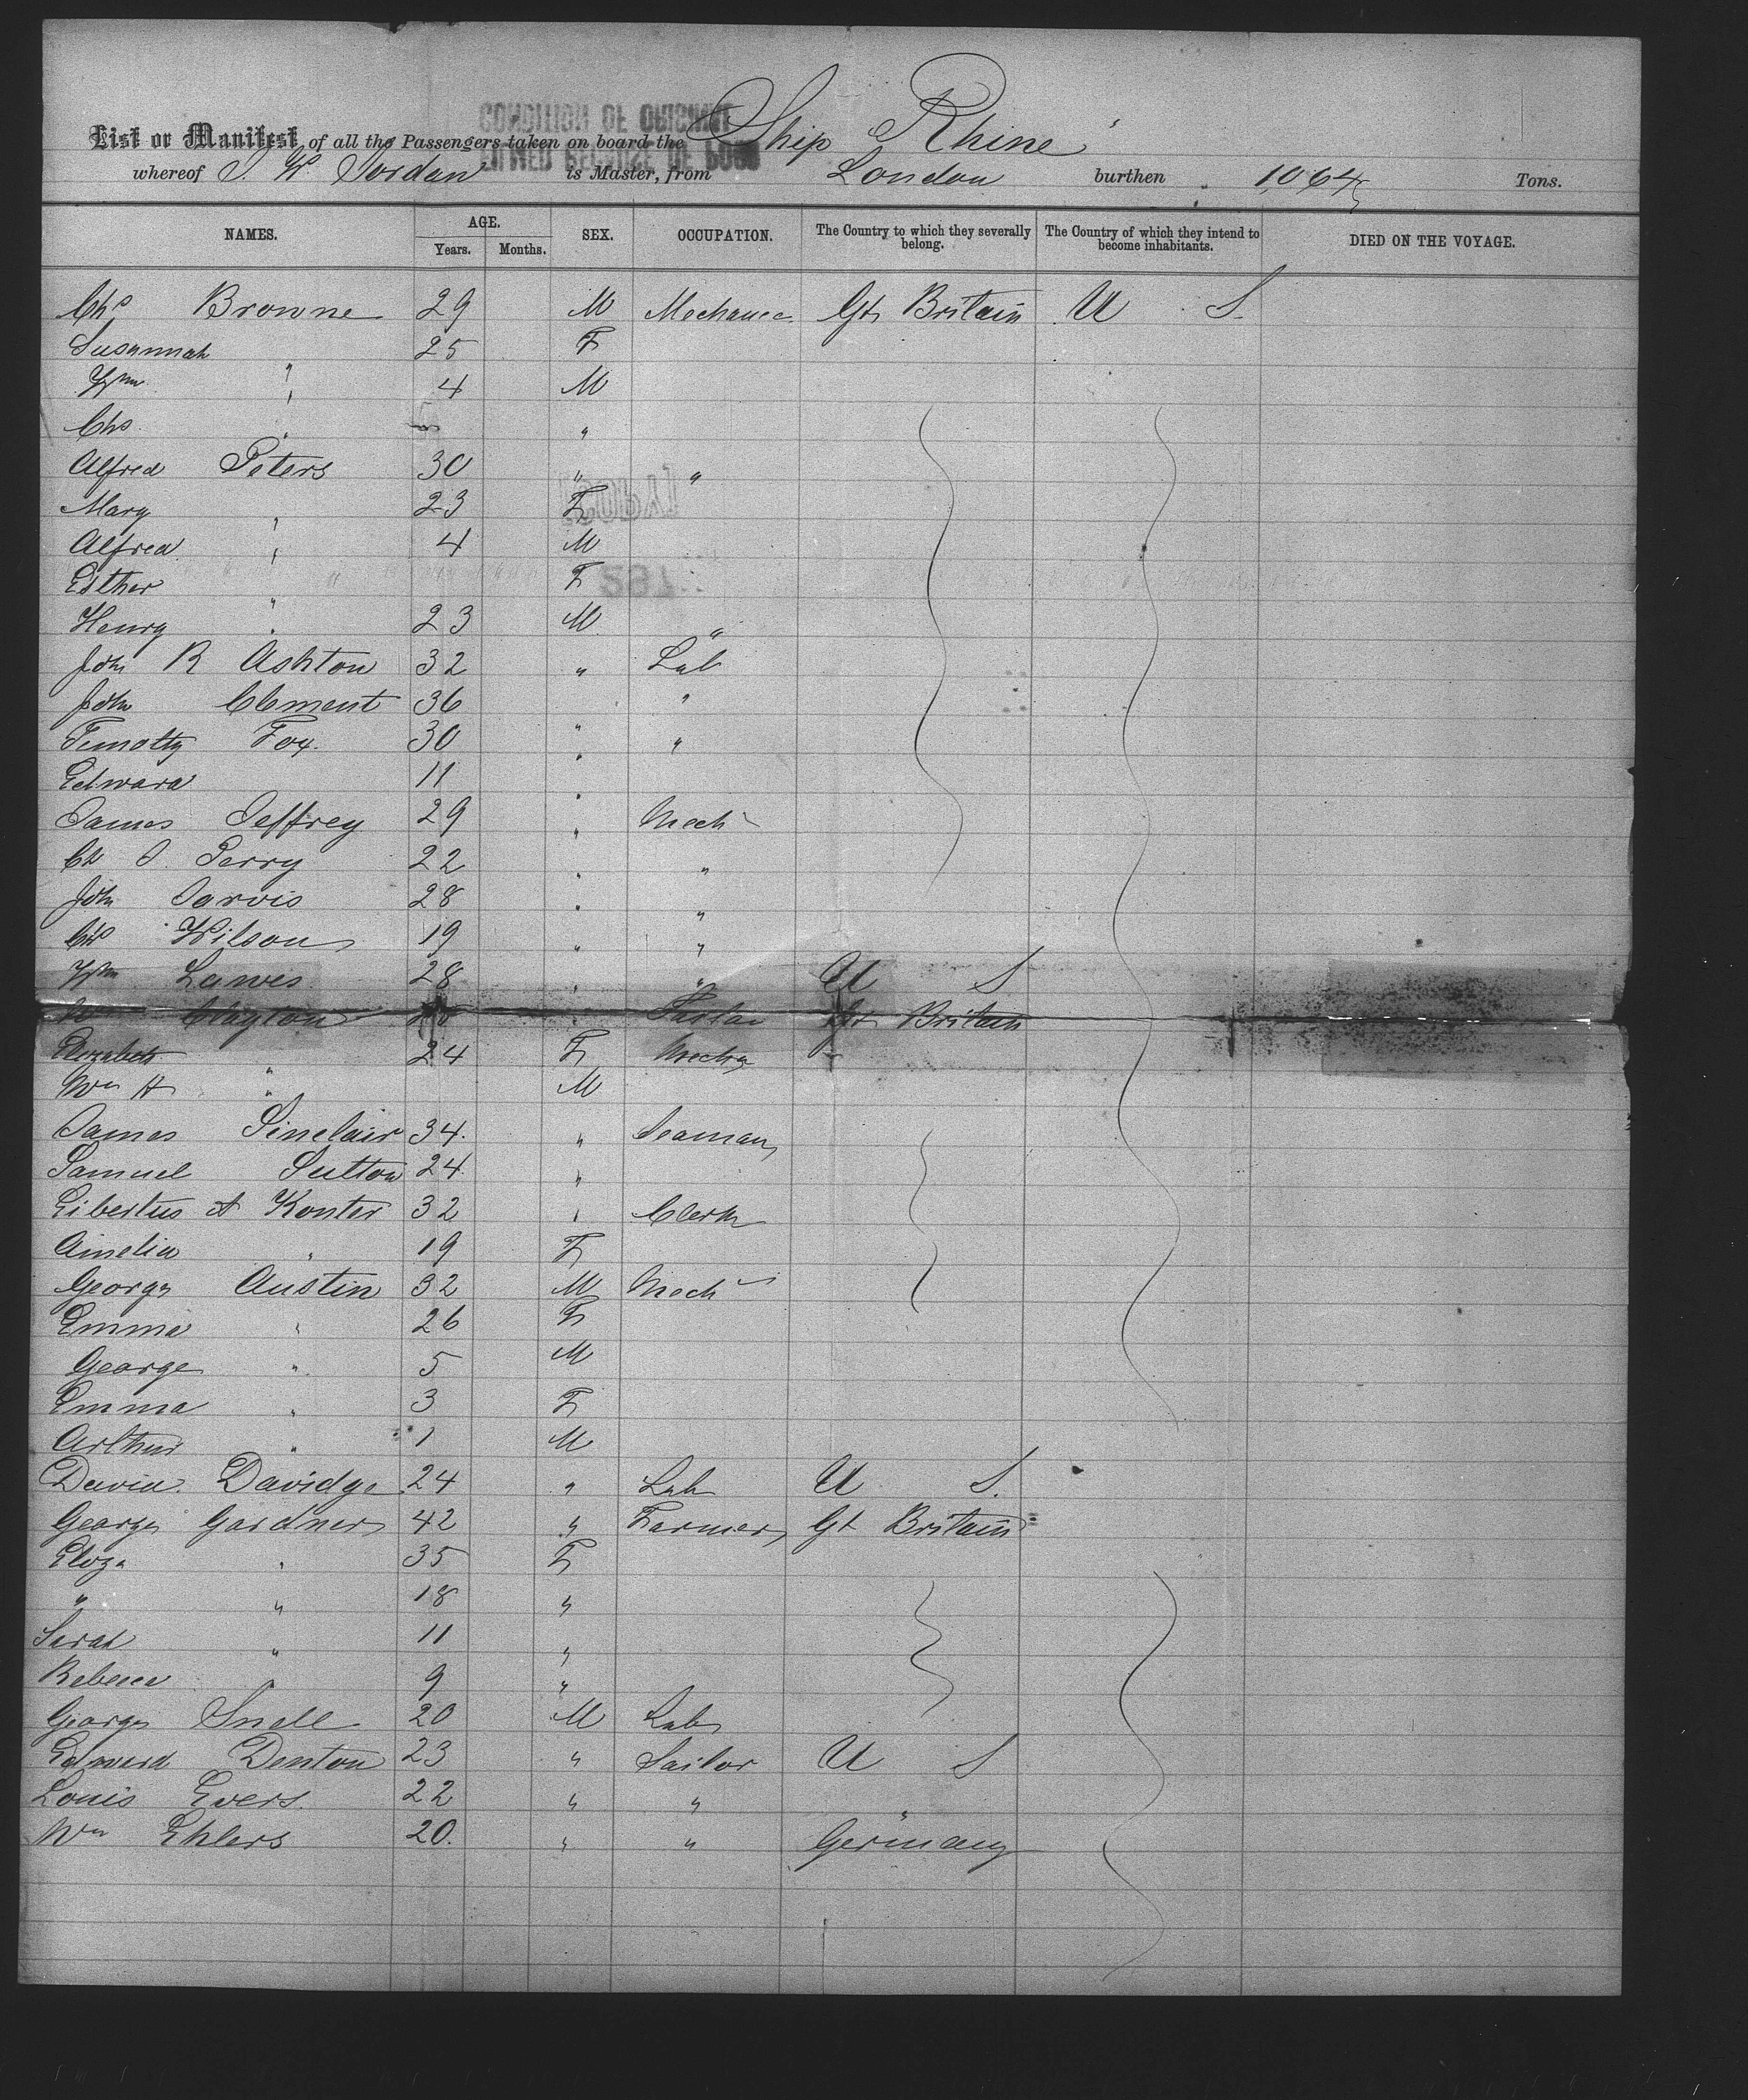 CONDITION OF ORIGINAL
List or Manifest of all the Passengers taken on board the Ship Rhine
whereof J. W. Jordan is Master, from London burthen 1064 Tons.
NAMES. AGE. Years. Months. SEX. OCCUPATION. The Country to which they severally belong. The Country of which they intend to become inhabitants. DIED ON THE VOYAGE.
Chs Browne 29 M Mechanic Gt Britain U S
Susannah 25 F
Wm " 4 M
Chs " "
Alfred Peters 30 " "
Mary " 23 F
Alfred " 4 M
Esther " F
Henry " 23 M "
John R Ashton 32 " Lab
John Clement 36 "
Timothy Fox 30 " "
Edward 11 "
James Jeffrey 29 " Mech
Ch J. Perry 22 " "
John Jarvis 28 " "
Chs Wilson 19 " "
Wm Lawes 28 " " U S
Wm Clayton Gt Britain
Elizabeth " 24 F Mecha
Wm H " M
James Sinclair 34 " Seaman
Samuel Sutton 24 "
Eibertus A Konter 32 " Clerk
Amelia " 19 F
George Austin 32 M Mech
Emma " 26 F
George " 5 M
Emma " 3 F
Arthur " 1 M
David Davidge 24 " Lab U S.
George Gardner 42 " Farmer Gt Britain
Eliza " 35 F
" " 18 "
Sarah " 11 "
Rebecca " 9 "
George Snell 20 M Lab
Edward Denton 23 " Sailor U S
Louis Evers 22 " " "
Wm Ehlers 20 " " Germany